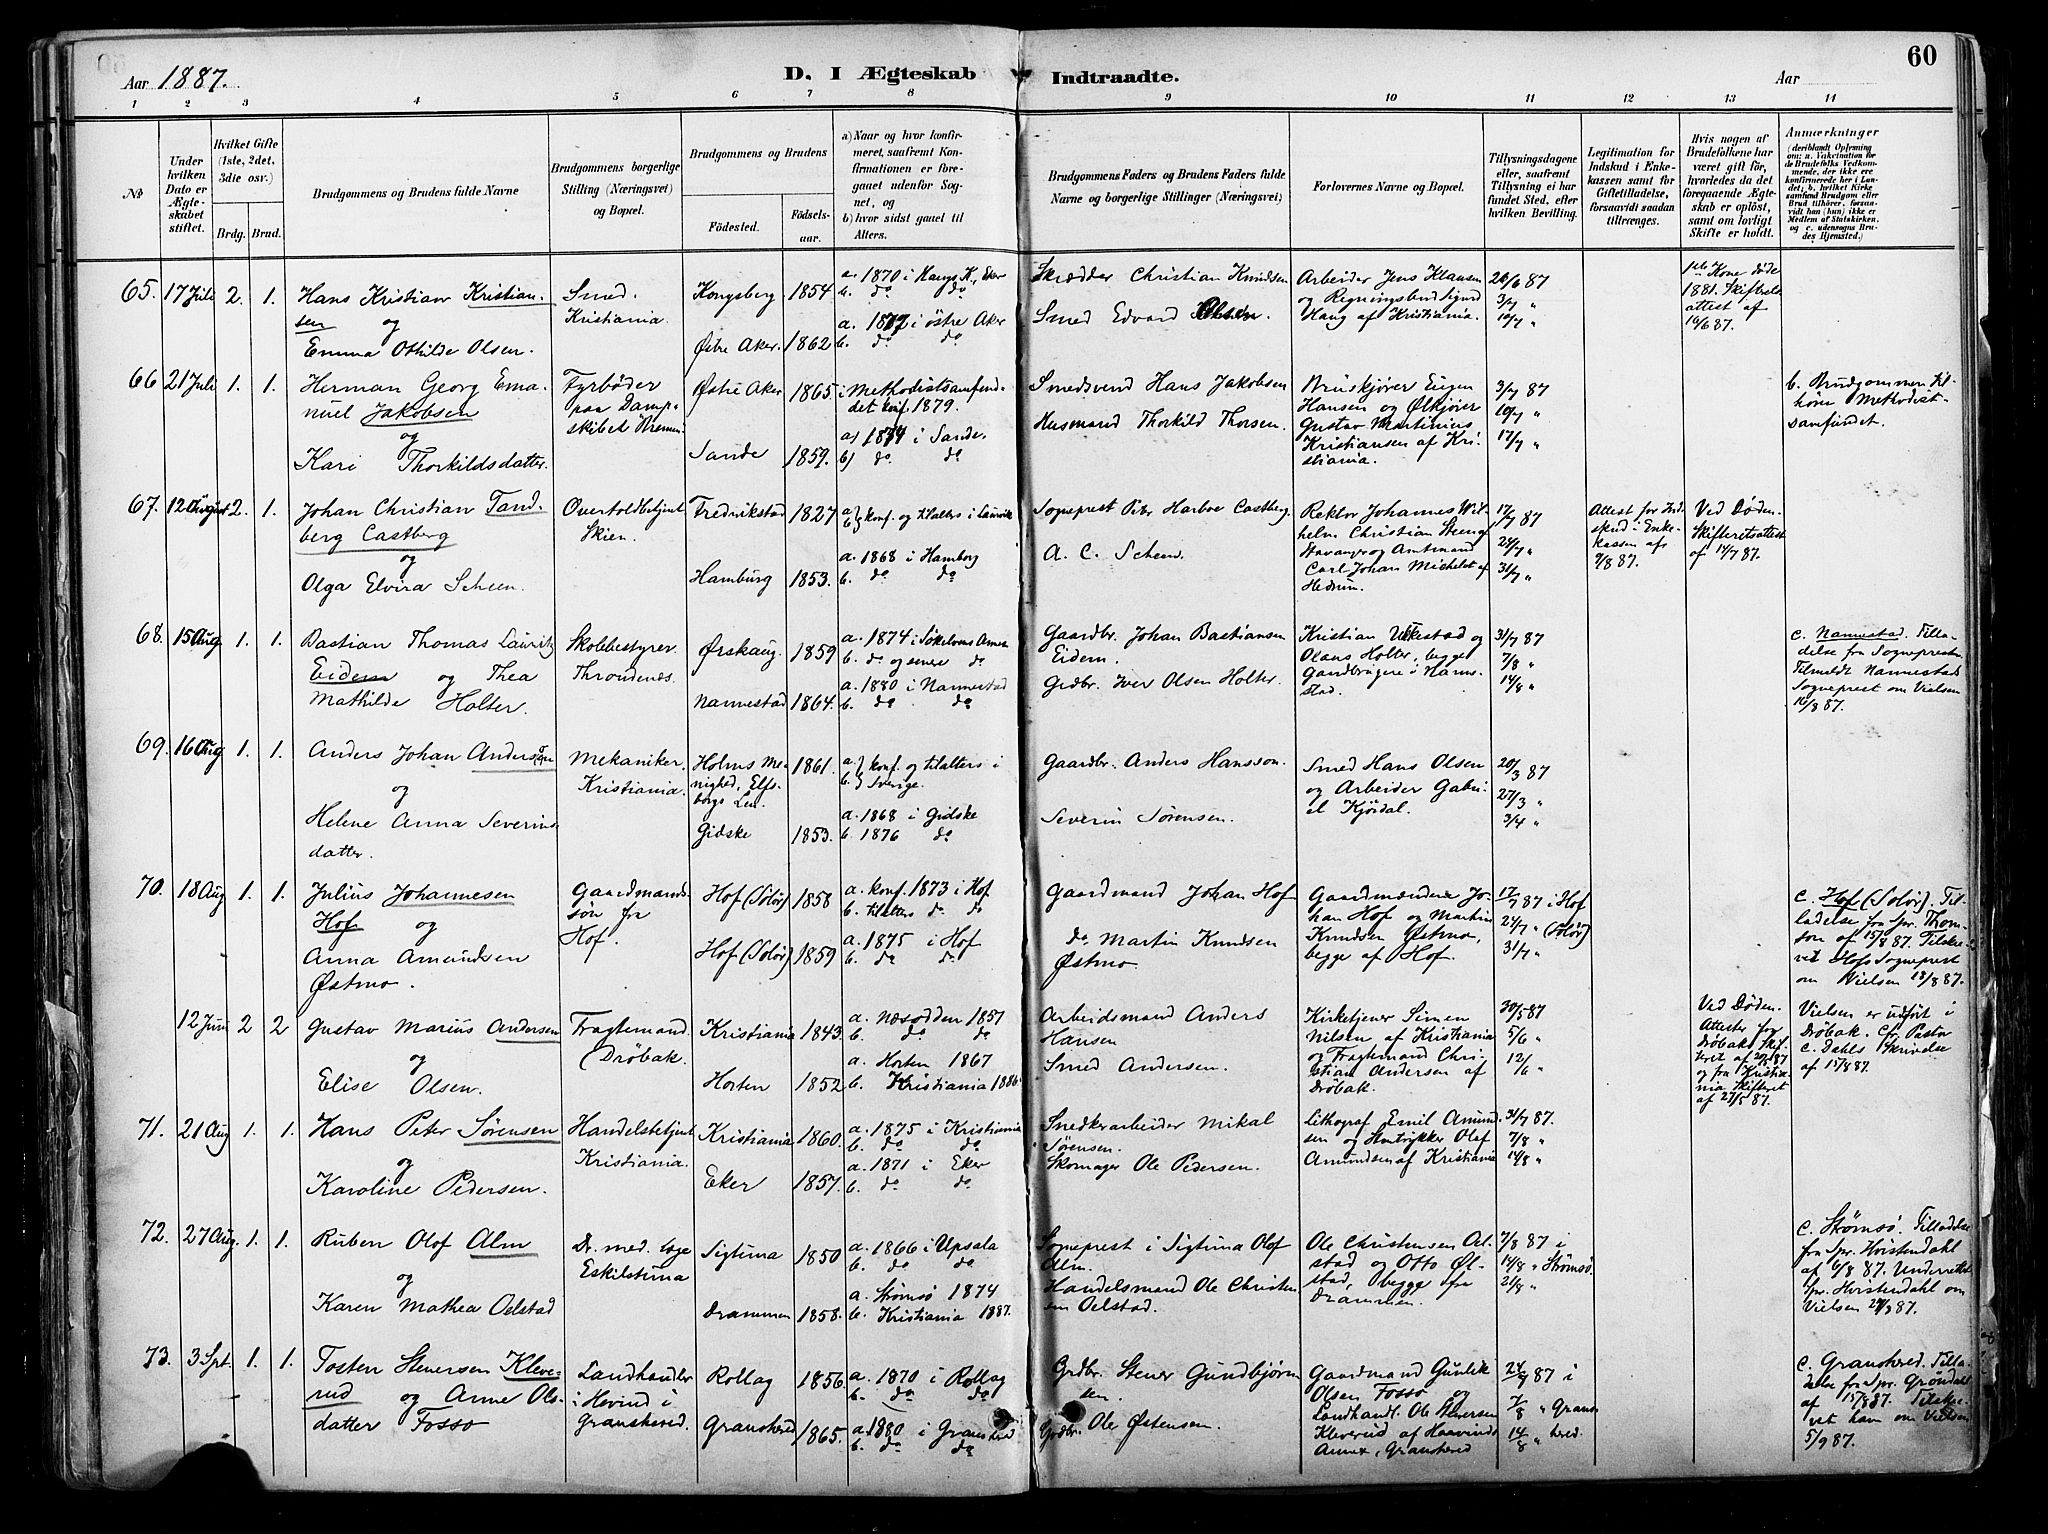 60
Aar 1887.
D. I Ægteskab Indtraadte.
Aar
1 2 3 4 5 6 7 8 9 10 11 12 13 14
№
Under hvilken Dato er Ægteskabet stiftet.
Hvilket Gifte (1ste, 2det, 3die osv.)
Brdg. Brud.
Brudgommens og Brudens fulde Navne
Brudgommens borgerlige Stilling (Næringsvei) og Bopæl.
Brudgommens og Brudens
Fødested.
Fødselsaar.
a) Naar og hvor konfirmeret, saafremt Konfirmationen er foregaaet udenfor Sognet, og
b) hvor sidst gaaet til Alters.
Brudgommens Faders og Brudens Faders fulde Navne og borgerlige Stillinger (Næringsvei)
Forlovernes Navne og Bopæl.
Tillysningsdagene eller, saafremt Tillysning ei har fundet Sted, efter hvilken Bevilling.
Legitimation for Indskud i Enkekassen samt for Giftetilladelse, forsaavidt saadan tiltrænges.
Hvis nogen af Brudefolkene har været gift før, hvorledes da det foregaaende Ægteskab er opløst, samt om lovligt Skifte er holdt.
Anmærkninger
(deriblandt Oplysning om: a. Vakcination for de Brudefolks Vedkommende, der ikke ere konfirmerede her i Landet; b. hvilket Kirkesamfund Brudgom eller Brud tilhører, forsaavidt han (hun) ikke er Medlem af Statskirken, og c. udensogns Brudes Hjemsted.)
65. 17 Juli 2. 1.
Hans Kristian Kristiansen
og
Emma Othilde Olsen.
Smed.
Kristiania.
Kongsberg 1854
Østre Aker. 1862
a. 1870 i Haugs K., Eker
b. do do
a. 1877 i østre Aker
b. do do
Skrædder Christian Knudsen
Smed Edvard Olsen.
Arbeider Jens Klausen
og Sigurd
Haug af Kristiania.
26/6 87
3/7 "
10/7 "
1ste Kone døde
1881. Skifterets
attest af
16/6 87.
66 21 Juli 1. 1.
Herman Georg Emanuel Jakobsen
og
Kari Thorkildsdatter.
Fyrbøder
paa Dampskibet Bremen.
Østre Aker 1865
Sande 1859.
i Methodistsamfundet konf. 1879.
a) 1874 i Sande.
b) do do
Smedsvend Hans Jakobsen
Husmand Thorkild Thorsen.
Bruskjører Eugen
Hansen og Ølkjører
Gustav Martinius
Kristiansen af Kristiania.
3/7 87
10/7 "
17/7 "
b. Brudgommen tilhører Methodistsamfundet.
67. 12 August 2. 1.
Johan Christian Tandberg Castberg
og
Olga Elvira Scheen.
Overtoldbetjent
Skien.
Fredrikstad 1827
Hamburg 1853.
a. b. konf. og tilalters i Laurvik
a. 1868 i Hamborg
b. do do
Sogneprest Peter Harboe Castberg.
A. C. Scheen.
Rektor Johannes Wilhelm Christian Steen af
Stavanger og Amtmand
Carl Johan Michelet af
Hedrum.
17/7 87
24/7 "
31/7 "
Attest for Indskud i Enkekassen af
9/8 87.
Ved Døden.
Skifteretsattest
af 14/7 87.
68. 15 Aug 1. 1.
Bastian Thomas Lauritz
Eidem og Thea
Mathilde Holter.
Skolebestyrer
Throndenæs.
Ørskaug. 1859
Nannestad 1864.
a. 1874 i Søkelvens Annex
b. do og senere do
a. 1880 i Nannestad
b. do do
Gaardbr. Johan Bastiansen
Eidem.
Grdbr. Iver Olsen Holter.
Kristian Ukkestad og
Olaus Holter, begge
Gaardbrugere i Nannestad.
31/7 87
7/8 "
14/8 "
c. Nannestad. Tilladelse fra Sogneprest.
Tilmeldt Nannestads
Sogneprest om Vielsen
16/8 87.
69. 16 Aug 1. 1.
Anders Johan Anderson
og
Helene Anna Severinsdatter.
Mekaniker.
Kristiania.
Holms Menighed, Elfsborgs Len. 1861.
Gidske 1853.
a. b. konf. og tilalters i
Sverige.
a. 1868 i Gidske
b. 1876 do
Gaardbr. Anders Hansson.
Severin Sørensen.
Smed Hans Olsen
og Arbeider Gabriel Kjödal.
20/3 87
27/3 "
3/4 "
70. 18 Aug 1. 1.
Julius Johannesen
Hof og
Anna Amundsen
Østmo.
Gaardmandssøn fra
Hof.
Hof (Solør) 1858
Hof (Solør) 1859
a. konf. 1873 i Hof
b. tilalters do do
a. 1875 i Hof
b. do do
Gaardmand Johan Hof
do Martin Knudsen
Østmo.
Gaardmændene Johan Hof og Martin
Knudsen Østmo,
begge af Hof.
17/7 87 i Hof
24/7 " (Solør)
31/7 "
c. Hof (Solør). Tilladelse fra Spr. Thomson af 15/8 87. Tilskrevet Hofs Sogneprest
om Vielsen 18/8 87.
12 Juni 2 2
Gustav Marius Andersen
og
Elise Olsen.
Fragtemand.
Drøbak.
Kristiania 1843.
Horten 1852
a. Næsodden 1857
b. do do
a. Horten 1867
b. Kristiania 1886
Arbeidsmand Anders
Hansen
Smed Andersen.
Kirketjener Simen
Nilsen af Kristiania
og Fragtemand Christian Andersen af
Drøbak.
30/5 87
5/6 "
12/6 "
Ved Døden.
Attester fra
Drøbak Skifteret af 20/5 87
og fra Kristiania Skifteret
af 27/5 87.
Vielsen er udført i
Drøbak. Cfr. Pastor
C. Dahls Skrivelse
af 15/8 87.
71. 21 Aug 1. 1.
Hans Peter Sørensen
og
Karoline Pedersen.
Handelsbetjent
Kristiania.
Kristiania 1860.
Eker 1857.
a. 1875 i Kristiania
b. do do
a. 1871 i Eker
b. do do
Snedkerarbeider Mikal
Sørensen.
Skomager Ole Pedersen.
Lithograf Emil Amundsen og Stentrykker Olaf
Amundsen af Kristiania
31/7 87.
7/8 "
14/8 "
72. 27 Aug. 1. 1.
Ruben Olof Alm
og
Karen Mathea Oelstad
Dr. med. Læge
Eskilstuna
Sigtuna 1850
Drammen 1858.
a. 1866 i Upsala
b. do do
a. Strømsø 1874
b. Kristiania 1887.
Sogneprest i Sigtuna Olof
Alm.
Handelsmand Ole Christensen Oelstad.
Ole Christensen Oelstad og Otto Ølstad, begge fra
Drammen.
7/8 87 i
14/8 " Strømsø.
21/8 "
c. Strømsø. Tilladelse
fra Spr. Hvistendahl
af 6/8 87. Underrettet
Spr. Hvistendahl om
Vielsen 29/8 87.
73. 3 Spt. 1. 1.
Tosten Stenersen Kleverud og Anne Olsdatter Fosso
Landhandler
i Hovind i
Gransherred.
Rollag 1856.
Gransherred 1865.
a. 1870 i Rollag
b. do do
a. 1880 i Gransherred
b. do do
Grdbr. Stener Gundbjørnsen.
Grdbr. Ole Østensen.
Gaardmand Gunlik
Olsen Fosso og
Landhandl. Ole Stenersen
Kleverud af Haavinds
Annex, Gransherred
24/7 87 i
7/8 " Grans
14/8 " herred.
c. Gransherred. Tilladelse fra Spr. Grøndahl
af 15/8 87. Tilskrevet ham om Vielsen
5/9 87.